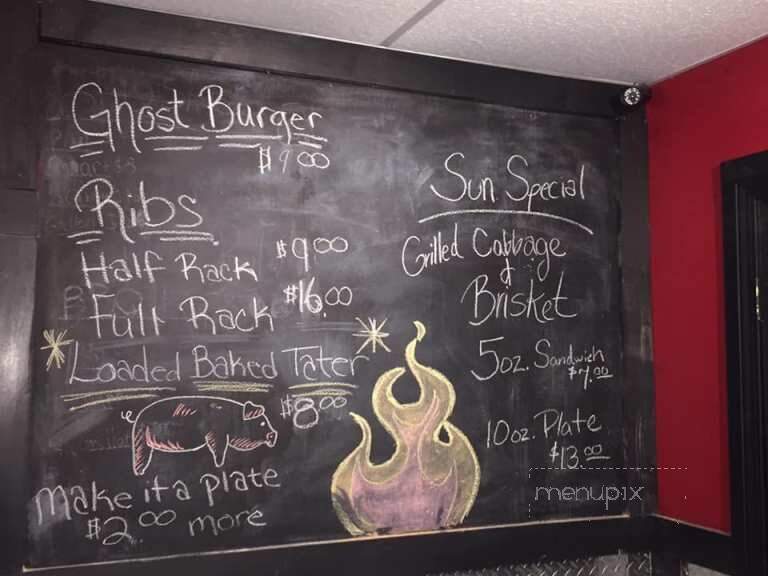 Ghost Burger
$9.00
Ribs
Half Rack $9.00
Full Rack $16.00
*Loaded Baked Tater*
$8.00
Make it a plate
$2.00 more
Sun. Special
Grilled Cabbage
&
Brisket
5oz. Sandwich
$7.00
10oz. Plate
$13.00
menupix